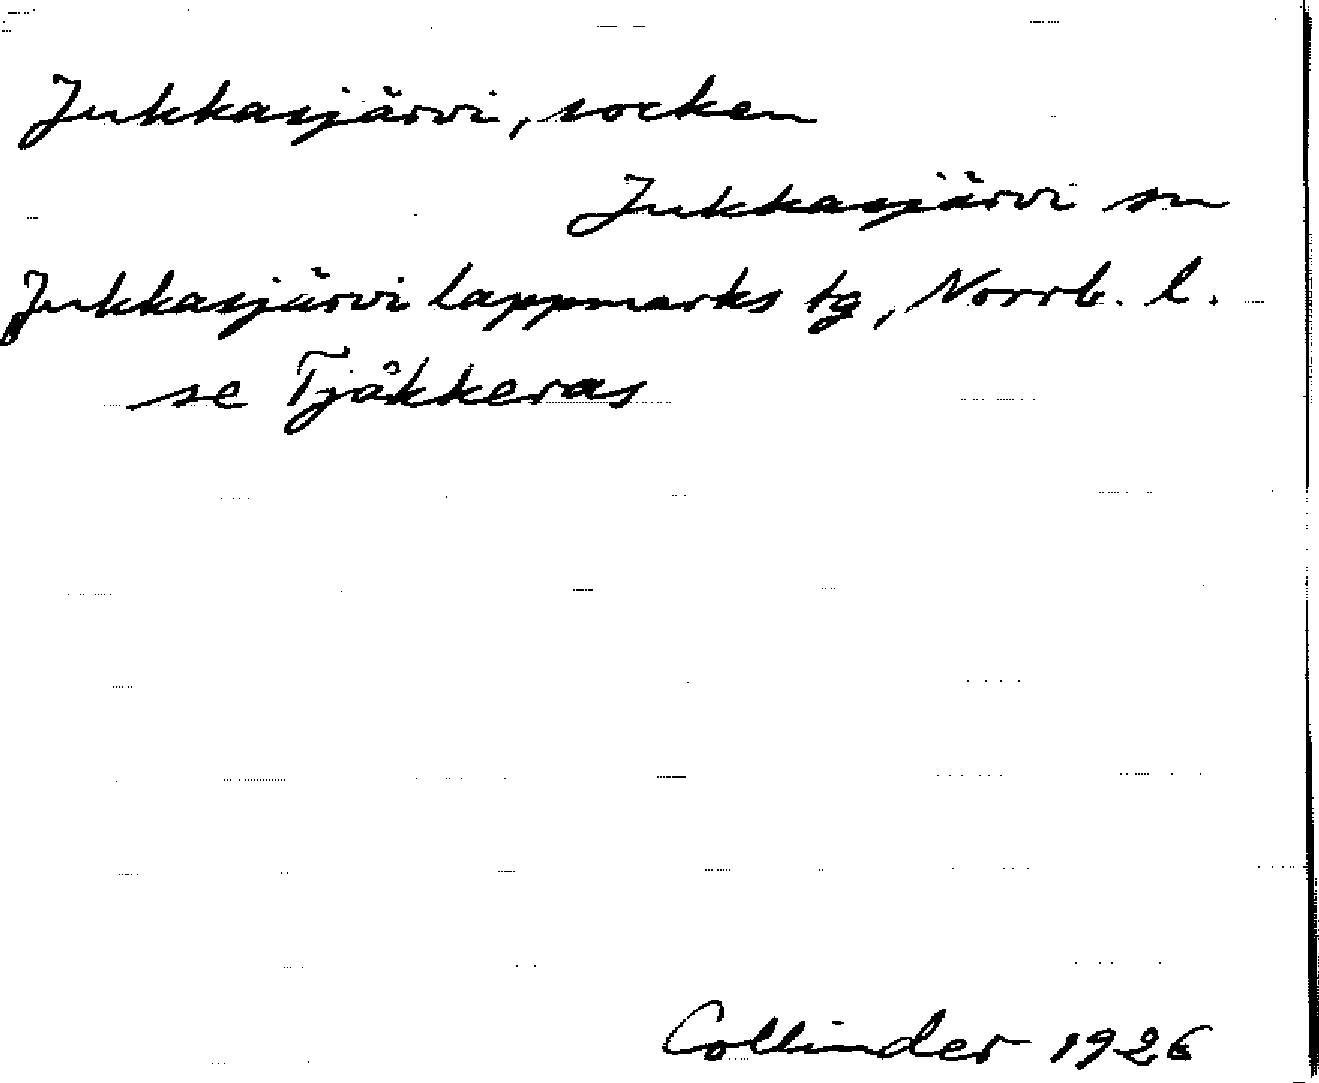 Jukkasjärvi, socken
Jukkasjärvi sn
Jukkasjärvi lappmarks tg, Norrb. l.
se Tjåkkeras
Collinder 1926